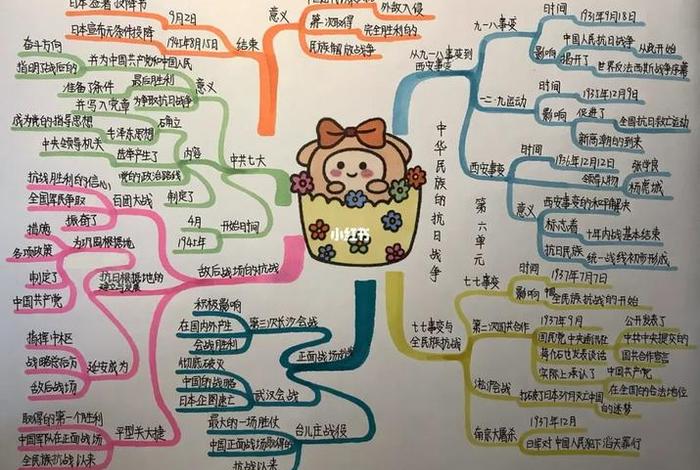 中华民族的抗日战争
第六单元
小红书
从九一八事变到
西安事变
九一八事变
时间
1931年9月18日
影响
中国人民抗日战争
从此开始
揭开了
世界反法西斯战争序幕
一二·九运动
时间
1935年12月9日
影响
促进了
全国抗日救亡运动
新高潮的到来
西安事变
时间
1936年12月12日
领导人物
张学良
杨虎城
意义
西安事变的和平解决
标志着
十年内战基本结束
抗日民族
统一战线初步形成
七七事变与
全民族抗战
七七事变
时间
1937年7月7日
影响
全民族抗战的开始
第二次国共合作
1937年9月
公开发表了
国民党中央通讯社
中共中央提交的
国共合作宣言
蒋介石也发表谈话
实际上承认了
中国共产党
在全国的合法地位
淞沪会战
打破了日本3个月灭亡中国
的迷梦
南京大屠杀
1937年12月
日军对中国人民犯下滔天罪行
正面战场的抗战
第三次长沙会战
积极影响
在国内外产生
会战胜利
武汉会战
彻底破灭
中国的战略
日本企图速亡
台儿庄战役
最大的一场胜仗
中国正面战场取得的
抗战以来
敌后战场的抗战
百团大战
抗战胜利的信心
全国军民争取
振奋了
抗日根据地的
建立与发展
措施
为巩固根据地
各项政策
制定了
中国共产党
延安成为
指挥中枢
战略总后方
敌后战场
平型关大捷
取得的第一个胜利
中国军队在正面战场
全民族抗战以来
中共七大
意义
奋斗方向
并为中国共产党和中国人民
指明了战后的
最后胜利
准备了条件
为争取抗日战争
内容
并写入党章
确立
成为党的指导思想
毛泽东思想
中央领导机关
选举产生了
党的政治路线
制定了
开始时间
4月
1945年
结束
9月2日
日本宣布无条件投降
1945年8月15日
意义
外敌入侵
第一次取得
完全胜利的
民族解放战争